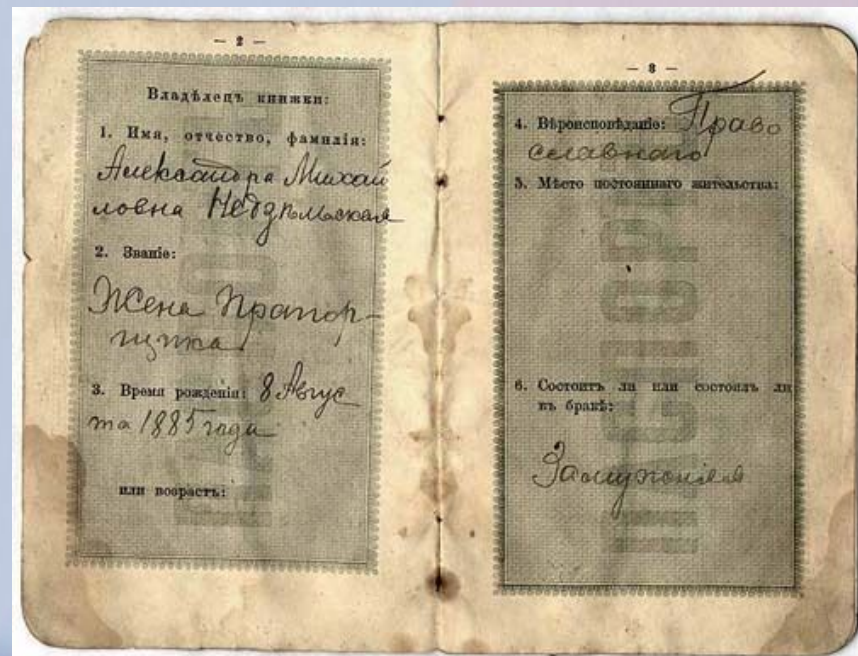 — 2 —
Владѣлецъ книжки:
1. Имя, отчество, фамилія:
Александра Михай
ловна Недзѣльская
2. Званіе:
Жена Прапор-
щика
3. Время рожденія: 8 Авгус
та 1885 года
или возрастъ:
— 3 —
4. Вѣроисповѣданіе: Право
славнаго
5. Мѣсто постояннаго жительства:
6. Состоитъ ли или состоялъ ли
въ бракѣ:
Замужняя
ПАСПОРТ